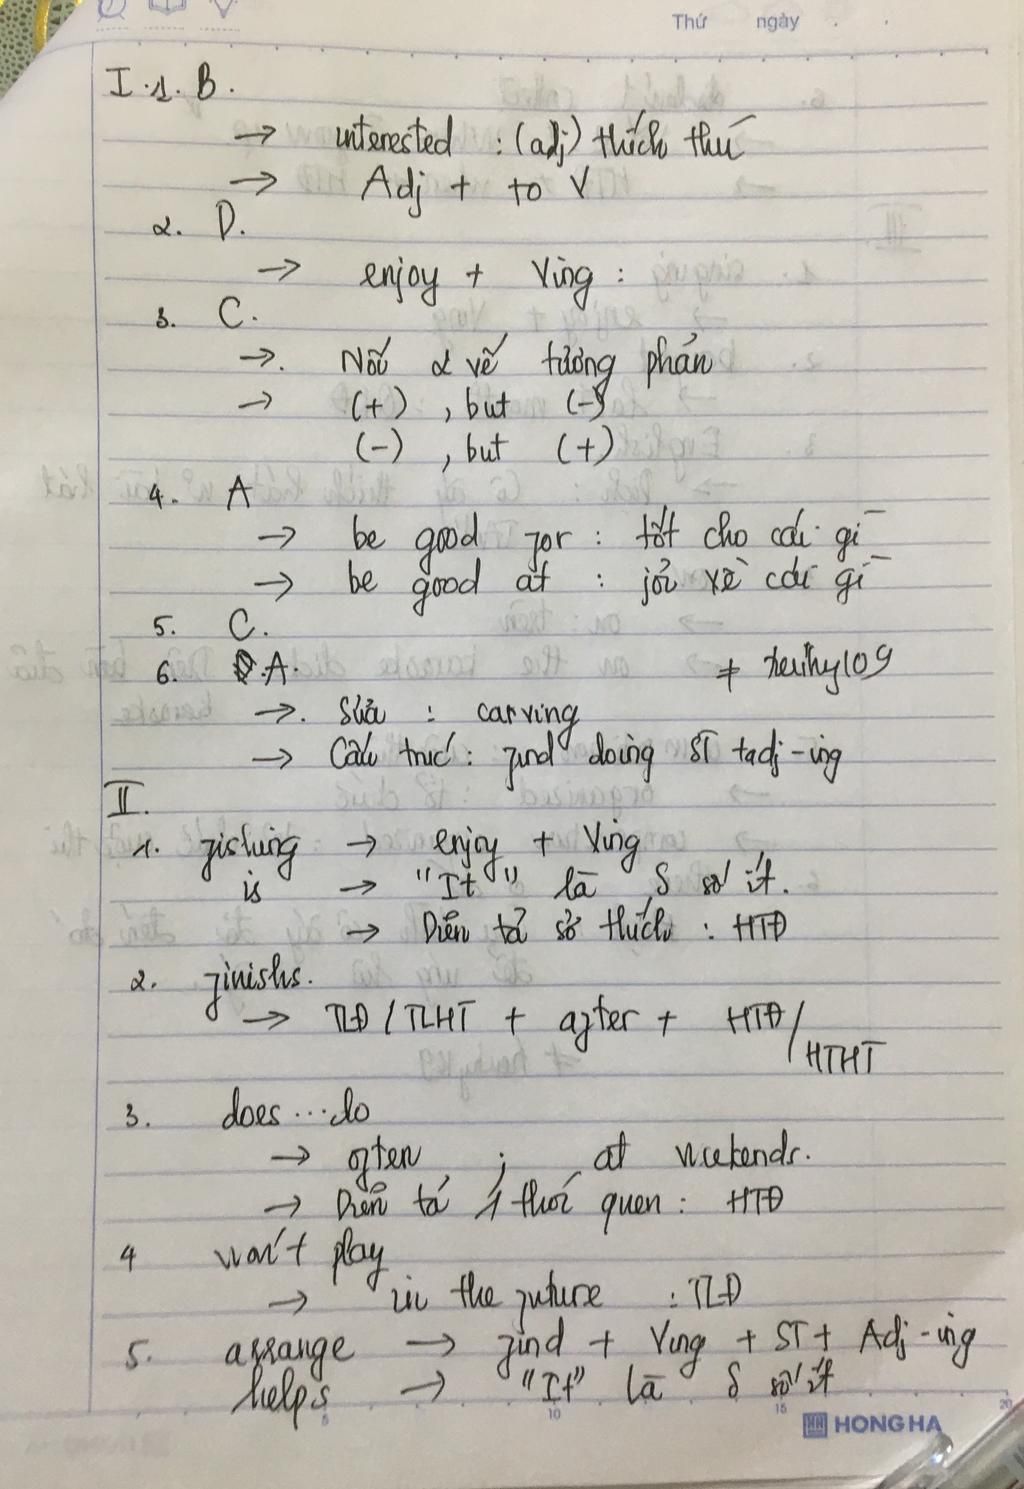 Thứ ngày
I.1. B.
→ interested : (adj) thích thú
→ Adj + to V
2. D.
→ enjoy + Ving :
3. C.
→. Nối 2 vế tương phản
→ (+) , but (-)
(-) , but (+)
4. A
→ be good for : tốt cho cái gì
→ be good at : jỏi về cái gì
5. C.
6. A.
→. Sửa : carving
→ Cấu trúc : find doing ST + adj-ing
II.
1. fishing → enjoy + Ving
is → "It" là S số ít.
→ Diễn tả sở thích : HTĐ
2. finishs.
→ TLĐ / TLHT + after + HTĐ/
HTHT
3. does...do
→ often ; at weekends.
→ Diễn tả 1 thói quen : HTĐ
4 won't play
→ in the future : TLĐ
5. arrange → find + Ving + ST + Adj-ing
helps → "It" là S số ít
5 10 15 20
HH HONG HA